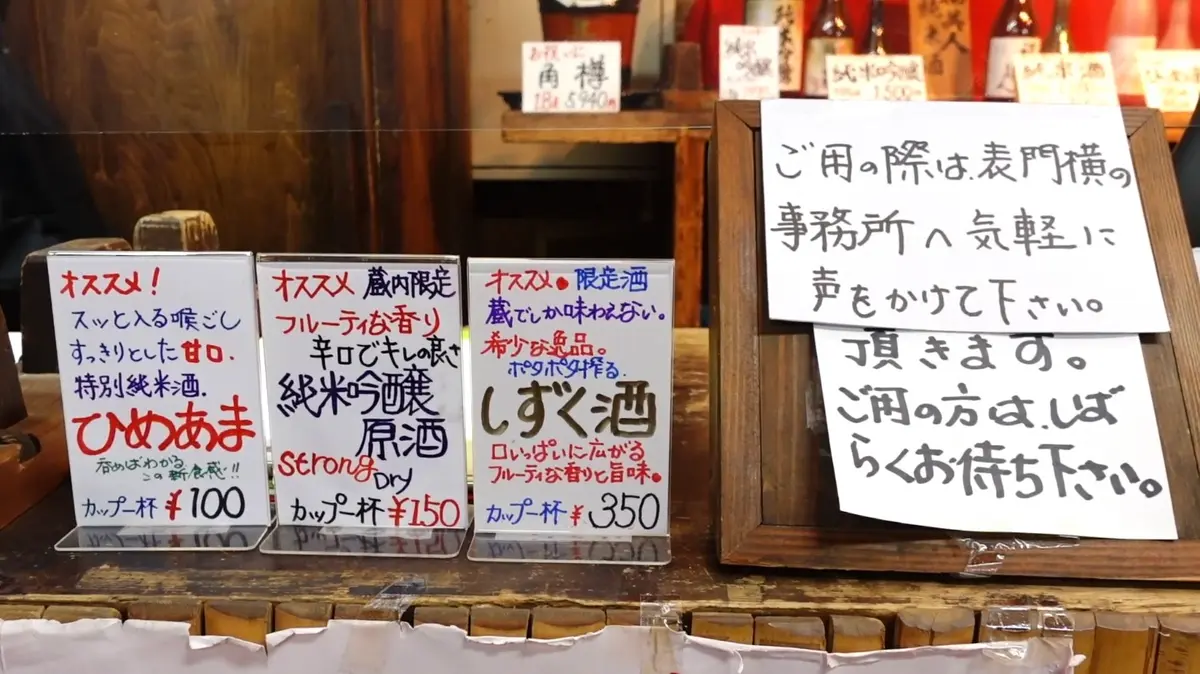 お祝いに
角樽
1.8ℓ 5,940円
純米
吟醸
純米吟醸
1500
純米酒
オススメ!
スッと入る喉ごし
すっきりとした甘口.
特別純米酒.
ひめあま
呑めばわかる
この新食感!!
カップ一杯 ¥100
オススメ 蔵内限定
フルーティな香り
辛口でキレの良さ
純米吟醸
原酒
strong
Dry
カップ一杯 ¥150
オススメ。限定酒
蔵でしか味わえない。
希少な逸品。
ポタポタ搾る.
しずく酒
口いっぱいに広がる
フルーティな香りと旨味。
カップ一杯 ¥350
ご用の際は、表門横の
事務所へ気軽に
声をかけて下さい。
頂きます。
ご用の方は、しば
らくお待ち下さい。